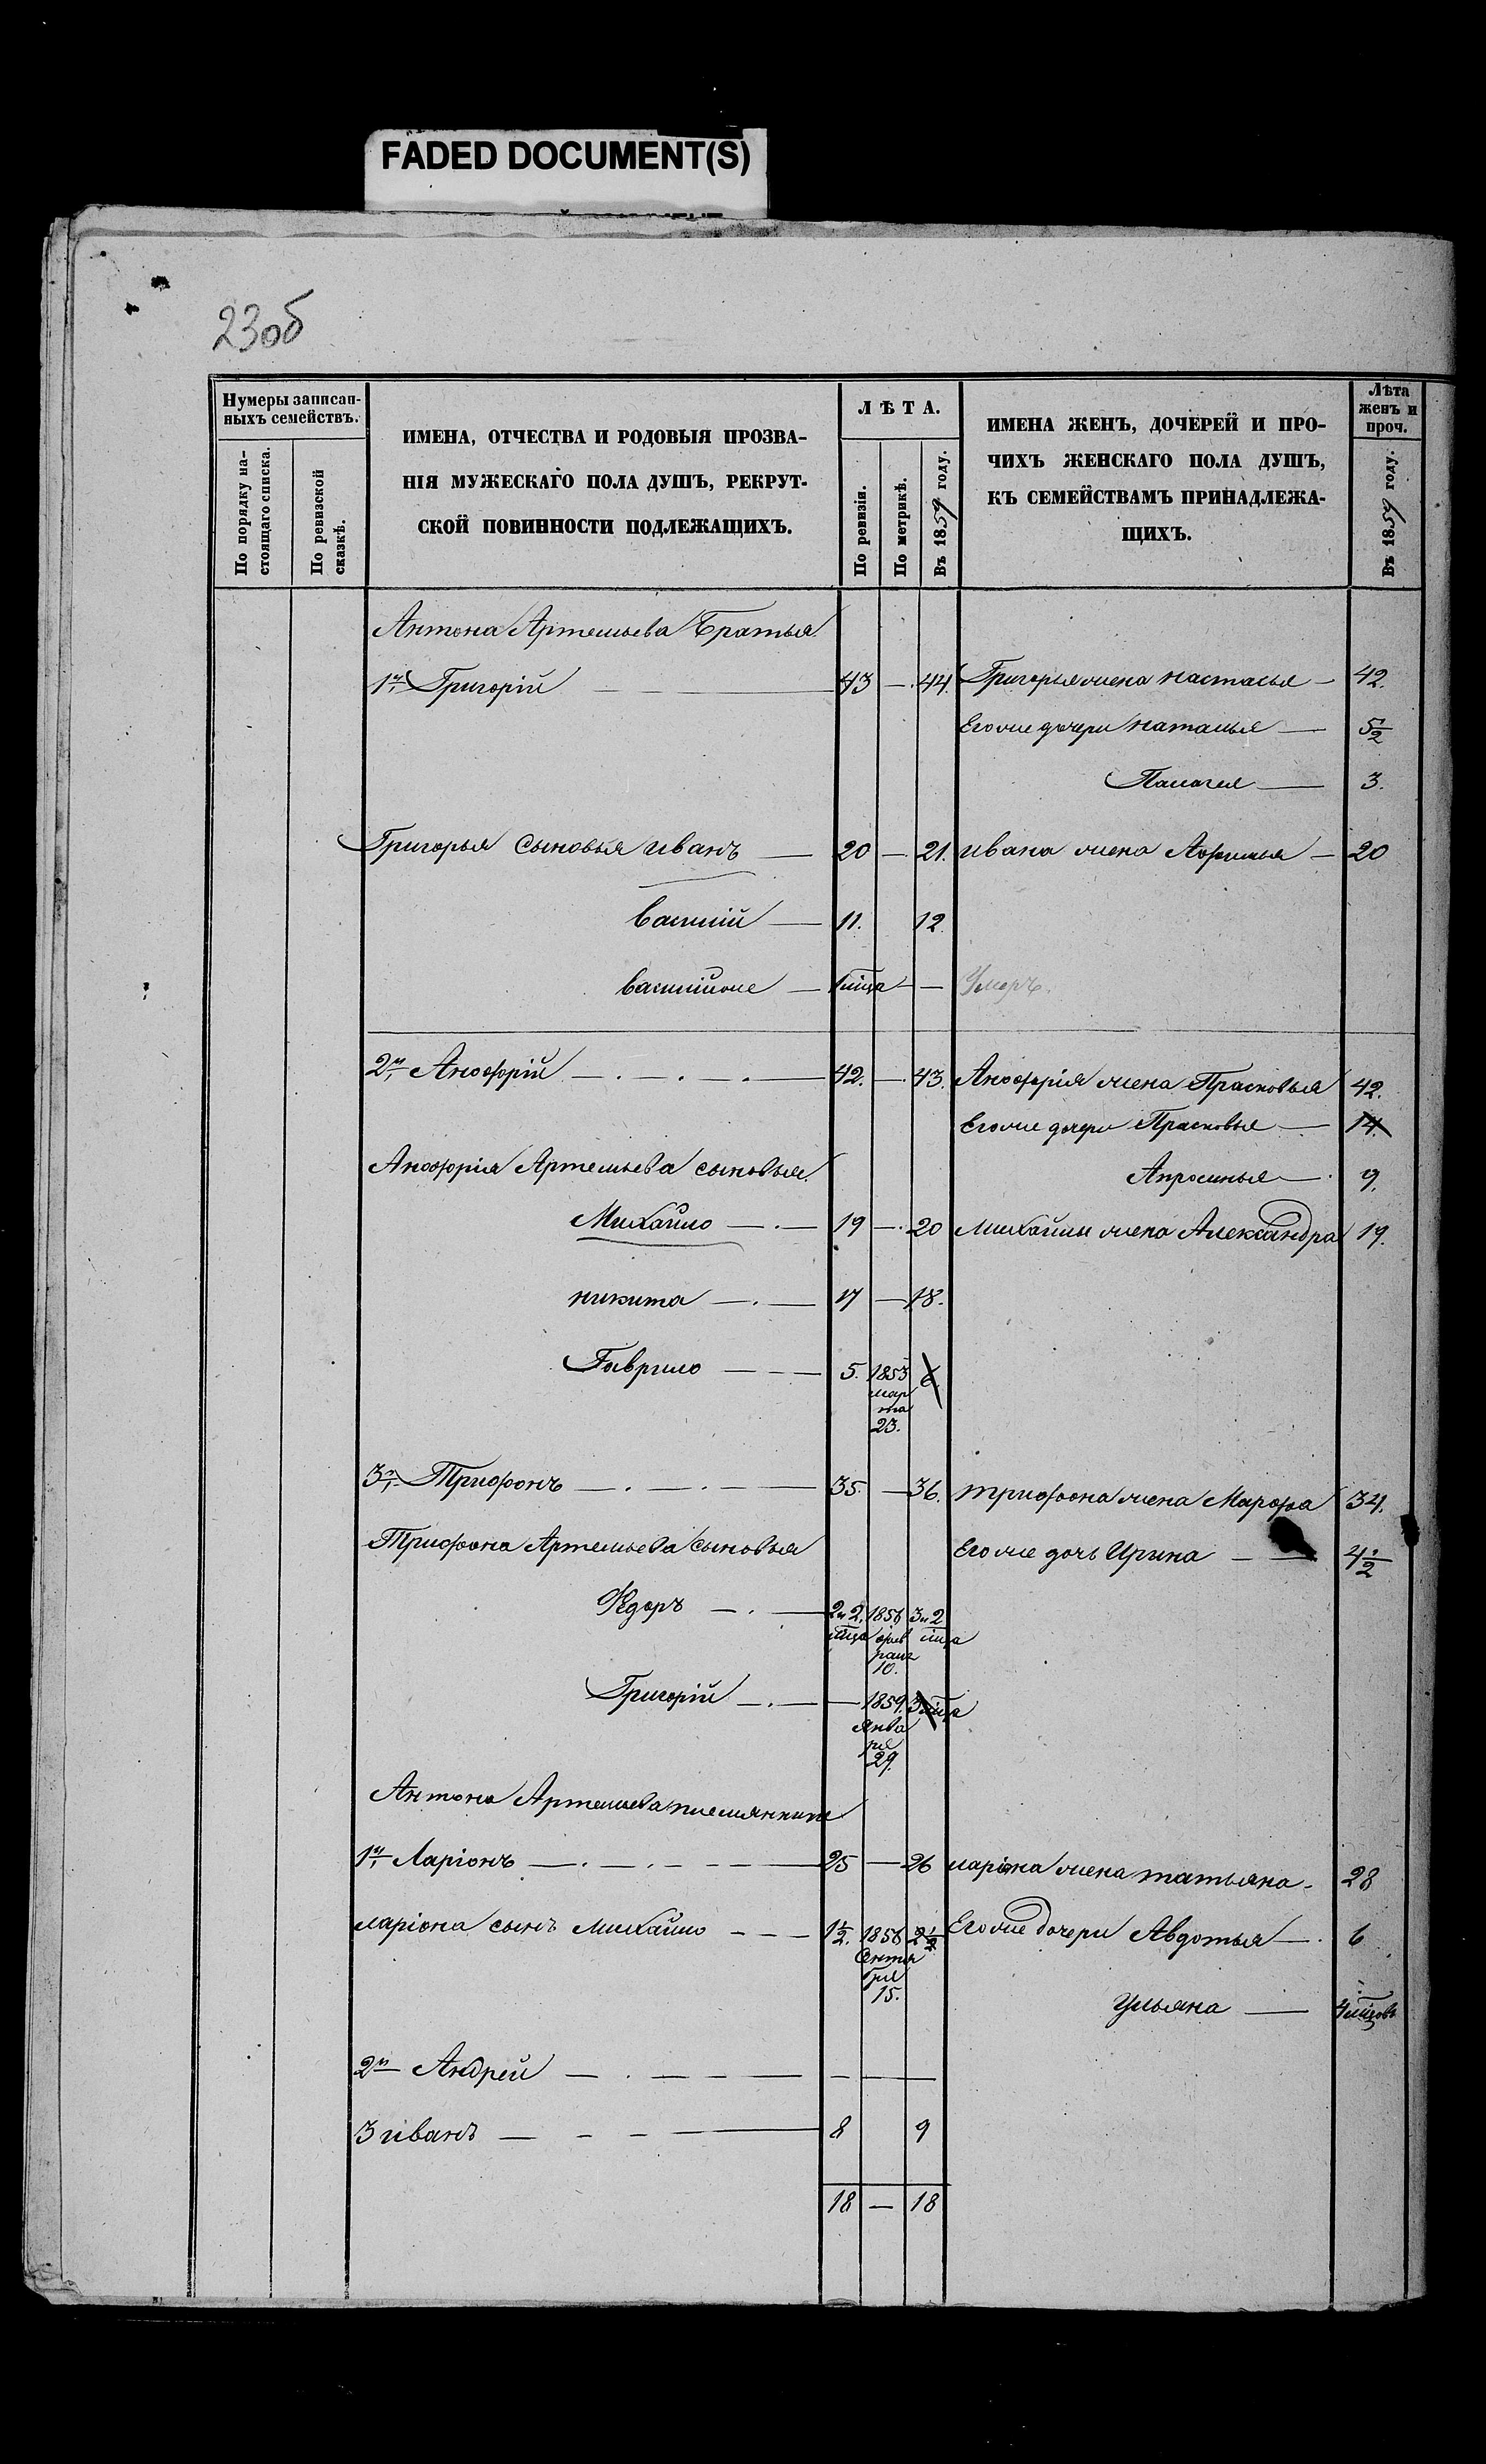 FADED DOCUMENT(S)
23об
Нумеры записан-
ныхъ семействъ.
По порядку на-
стоящаго списка.
По ревизской
сказкѣ.
ИМЕНА, ОТЧЕСТВА И РОДОВЫЯ ПРОЗВА-
НІЯ МУЖЕСКАГО ПОЛА ДУШЪ, РЕКРУТ-
СКОЙ ПОВИННОСТИ ПОДЛЕЖАЩИХЪ.
ЛѢТА.
По ревизіи.
По метрикѣ.
Въ 1859 году.
ИМЕНА ЖЕНЪ, ДОЧЕРЕЙ И ПРО-
ЧИХЪ ЖЕНСКАГО ПОЛА ДУШЪ,
КЪ СЕМЕЙСТВАМЪ ПРИНАДЛЕЖА-
ЩИХЪ.
Лѣта
женъ и
проч.
Въ 1859 году.
Антона Артемьева Братья
1й, Григорій — 43 — 44. Григорья жена настасья — 42.
Его же дочери наталья — 5½
Палагея — 3.
Григорья сыновья иванъ — 20 — 21. ивана жена Афимья — 20
василій — 11. 12
василійже — 1 мца — — Умеръ.
2й, Анофрій — 42. — 43. Анофрія жена Прасковья 42.
Его же дочери Прасковья — 14.
Анофрія Артемьева сыновья
Апросинья — 9.
Михайло — 19 — 20 михайлы жена Александра 19.
никита — 17 — 18.
Гаврило — 5. 1853 6.
мар
та
23.
3й, Трифонъ — 35. — 36. трифона жена Марфа 34.
Трифона Артемьева сыновья Его же дочь Ирина — 4½
Ѳедоръ — 2 и 2. 1856 3 и 2
мца фев мца
раля
10.
Григорій — — 1859. 3 мца
Янва
ря
29.
Антона Артемьева племянники
1й, Ларіонъ — 25 — 26 ларіона жена татьяна — 28
ларіона сынъ Михайло — 1½. 1856 2½ Его же дочери Авдотья — 6
Сентя
бря
15.
Ульяна — 4 мцовъ
2й Андрей — — —
3 иванъ — 8 9
18 — 18